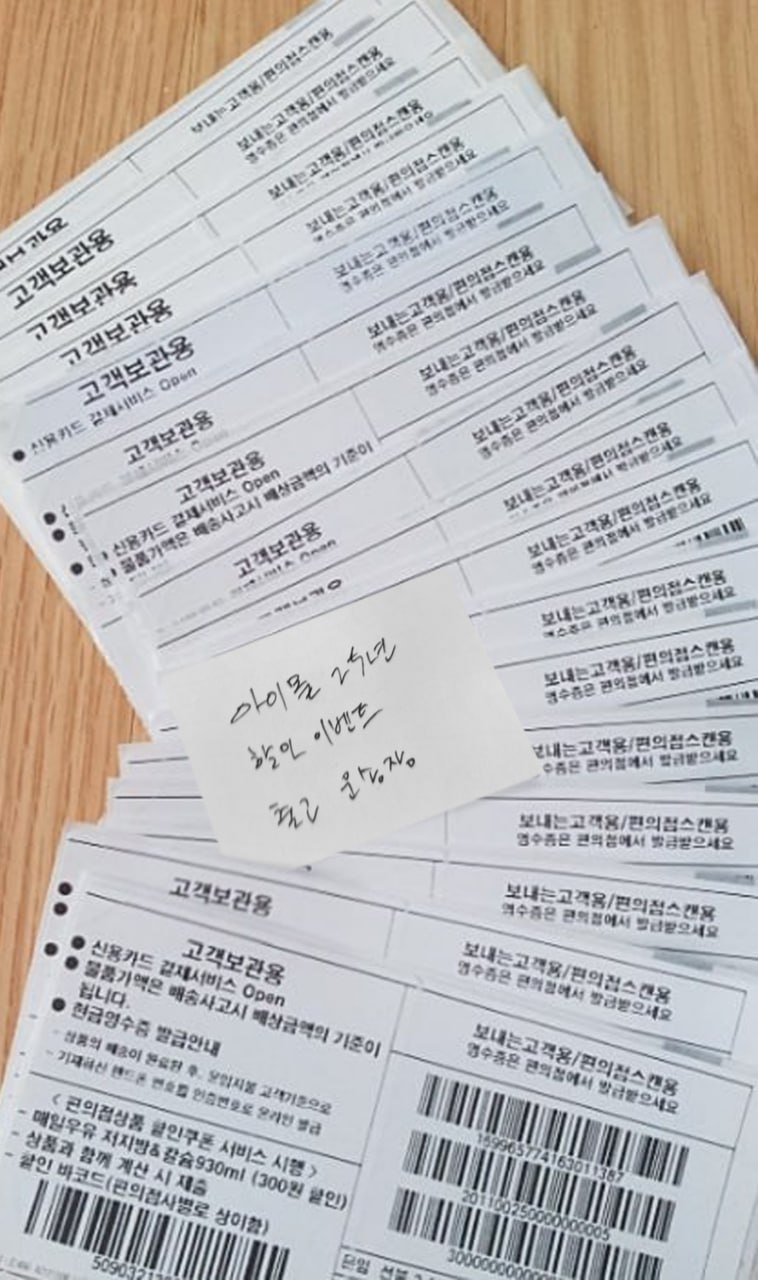 보내는고객용/편의점스캔용
보내는고객용/편의점스캔용
영수증은 편의점에서 발급받으세요
보내는고객용/편의점스캔용
고객보관용
보내는고객용/편의점스캔용
고객보관용
보내는고객용/편의점스캔용
영수증은 편의점에서 발급받으세요
고객보관용
보내는고객용/편의점스캔용
영수증은 편의점에서 발급받으세요
고객보관용
신용카드 결제서비스 Open
보내는고객용/편의점스캔용
영수증은 편의점에서 발급받으세요
고객보관용
보내는고객용/편의점스캔용
영수증은 편의점에서 발급받으세요
고객보관용
신용카드 결제서비스 Open
물품가액은 배송사고시 배상금액의 기준이
보내는고객용/편의점스캔용
고객보관용
보내는고객용/편의점스캔용
영수증은 편의점에서 발급받으세요
보내는고객용/편의점스캔용
보내는고객용/편의점스캔용
영수증은 편의점에서 발급받으세요
아이몰 2주년
할인 이벤트
출고 운송장
보내는고객용/편의점스캔용
영수증은 편의점에서 발급받으세요
보내는고객용/편의점스캔용
영수증은 편의점에서 발급받으세요
고객보관용
보내는고객용/편의점스캔용
영수증은 편의점에서 발급받으세요
보내는고객용/편의점스캔용
영수증은 편의점에서 발급받으세요
고객보관용
신용카드 결제서비스 Open
물품가액은 배송사고시 배상금액의 기준이
됩니다.
현금영수증 발급안내
- 상품의 배송이 완료된 후, 운임지불 고객기준으로
기재하신 핸드폰 번호를 인증번호로 온라인 발급
< 편의점상품 할인쿠폰 서비스 시행 >
- 매일우유 저지방&칼슘930ml (300원 할인)
- 상품과 함께 계산 시 제출
- 할인 바코드(편의점사별로 상이함)
보내는고객용/편의점스캔용
영수증은 편의점에서 발급받으세요
169965774163011387
201100250000000005
운임